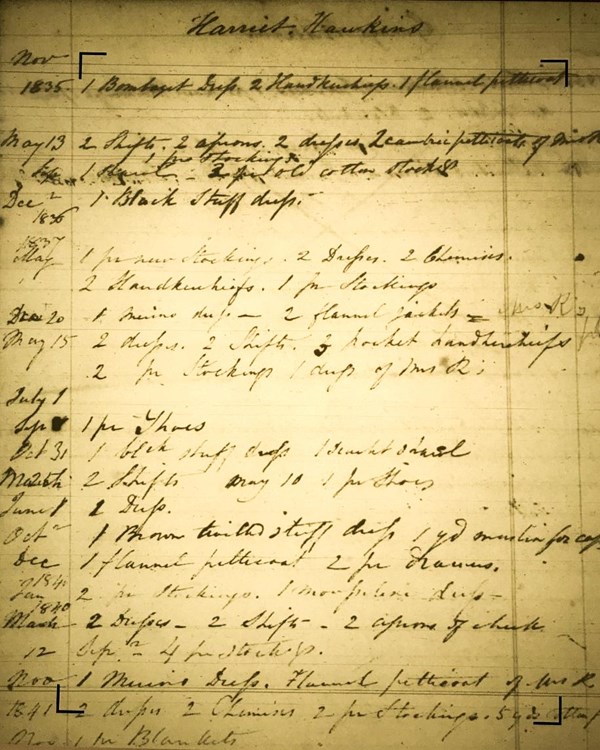 Harriet. Hawkins
Nov
1835. 1 Bombazet Dress. 2 Handkerchiefs. 1 flannel petticoat
May 13 2 Shifts. 2 aprons. 2 dresses 2 cambric petticoats of
1 pr Stockings
1 2 pr old cotton stock
Dec 1 Black Stuff dress.
1836
1837
May 1 pr new Stockings. 2 Dresses. 2 Chemises.
2 Handkerchiefs. 1 pr Stockings
Dec 20 1 Merino dress - 2 flannel jackets - Mrs R's
May 15 2 dresses. 2 Shifts. 3 pocket handkerchiefs
2 pr Stockings 1 dress of Mrs R's
July 1
Sep 1 pr Shoes
Oct 31 1 blck stuff dress 1 Scarlet Shawl
March 2 Shifts may 10 1 pr Shoes
June 1 2 Dress.
Oct 1 Brown twilled stuff dress 1 yd muslin for cap
Dec 1 flannel petticoat 2 pr Drawers.
Jan 2 pr Stockings. 1 dress -
1840
March - 2 Dresses - 2 Shifts - 2 aprons of check
12 Sep 4 pr Stockgs.
Nov 1 Merino Dress. Flannel petticoat of Mrs R
1841 2 dresses 2 Chemises 2 pr Stockings. 5 yds cotton
Nov 1 pr Blankets